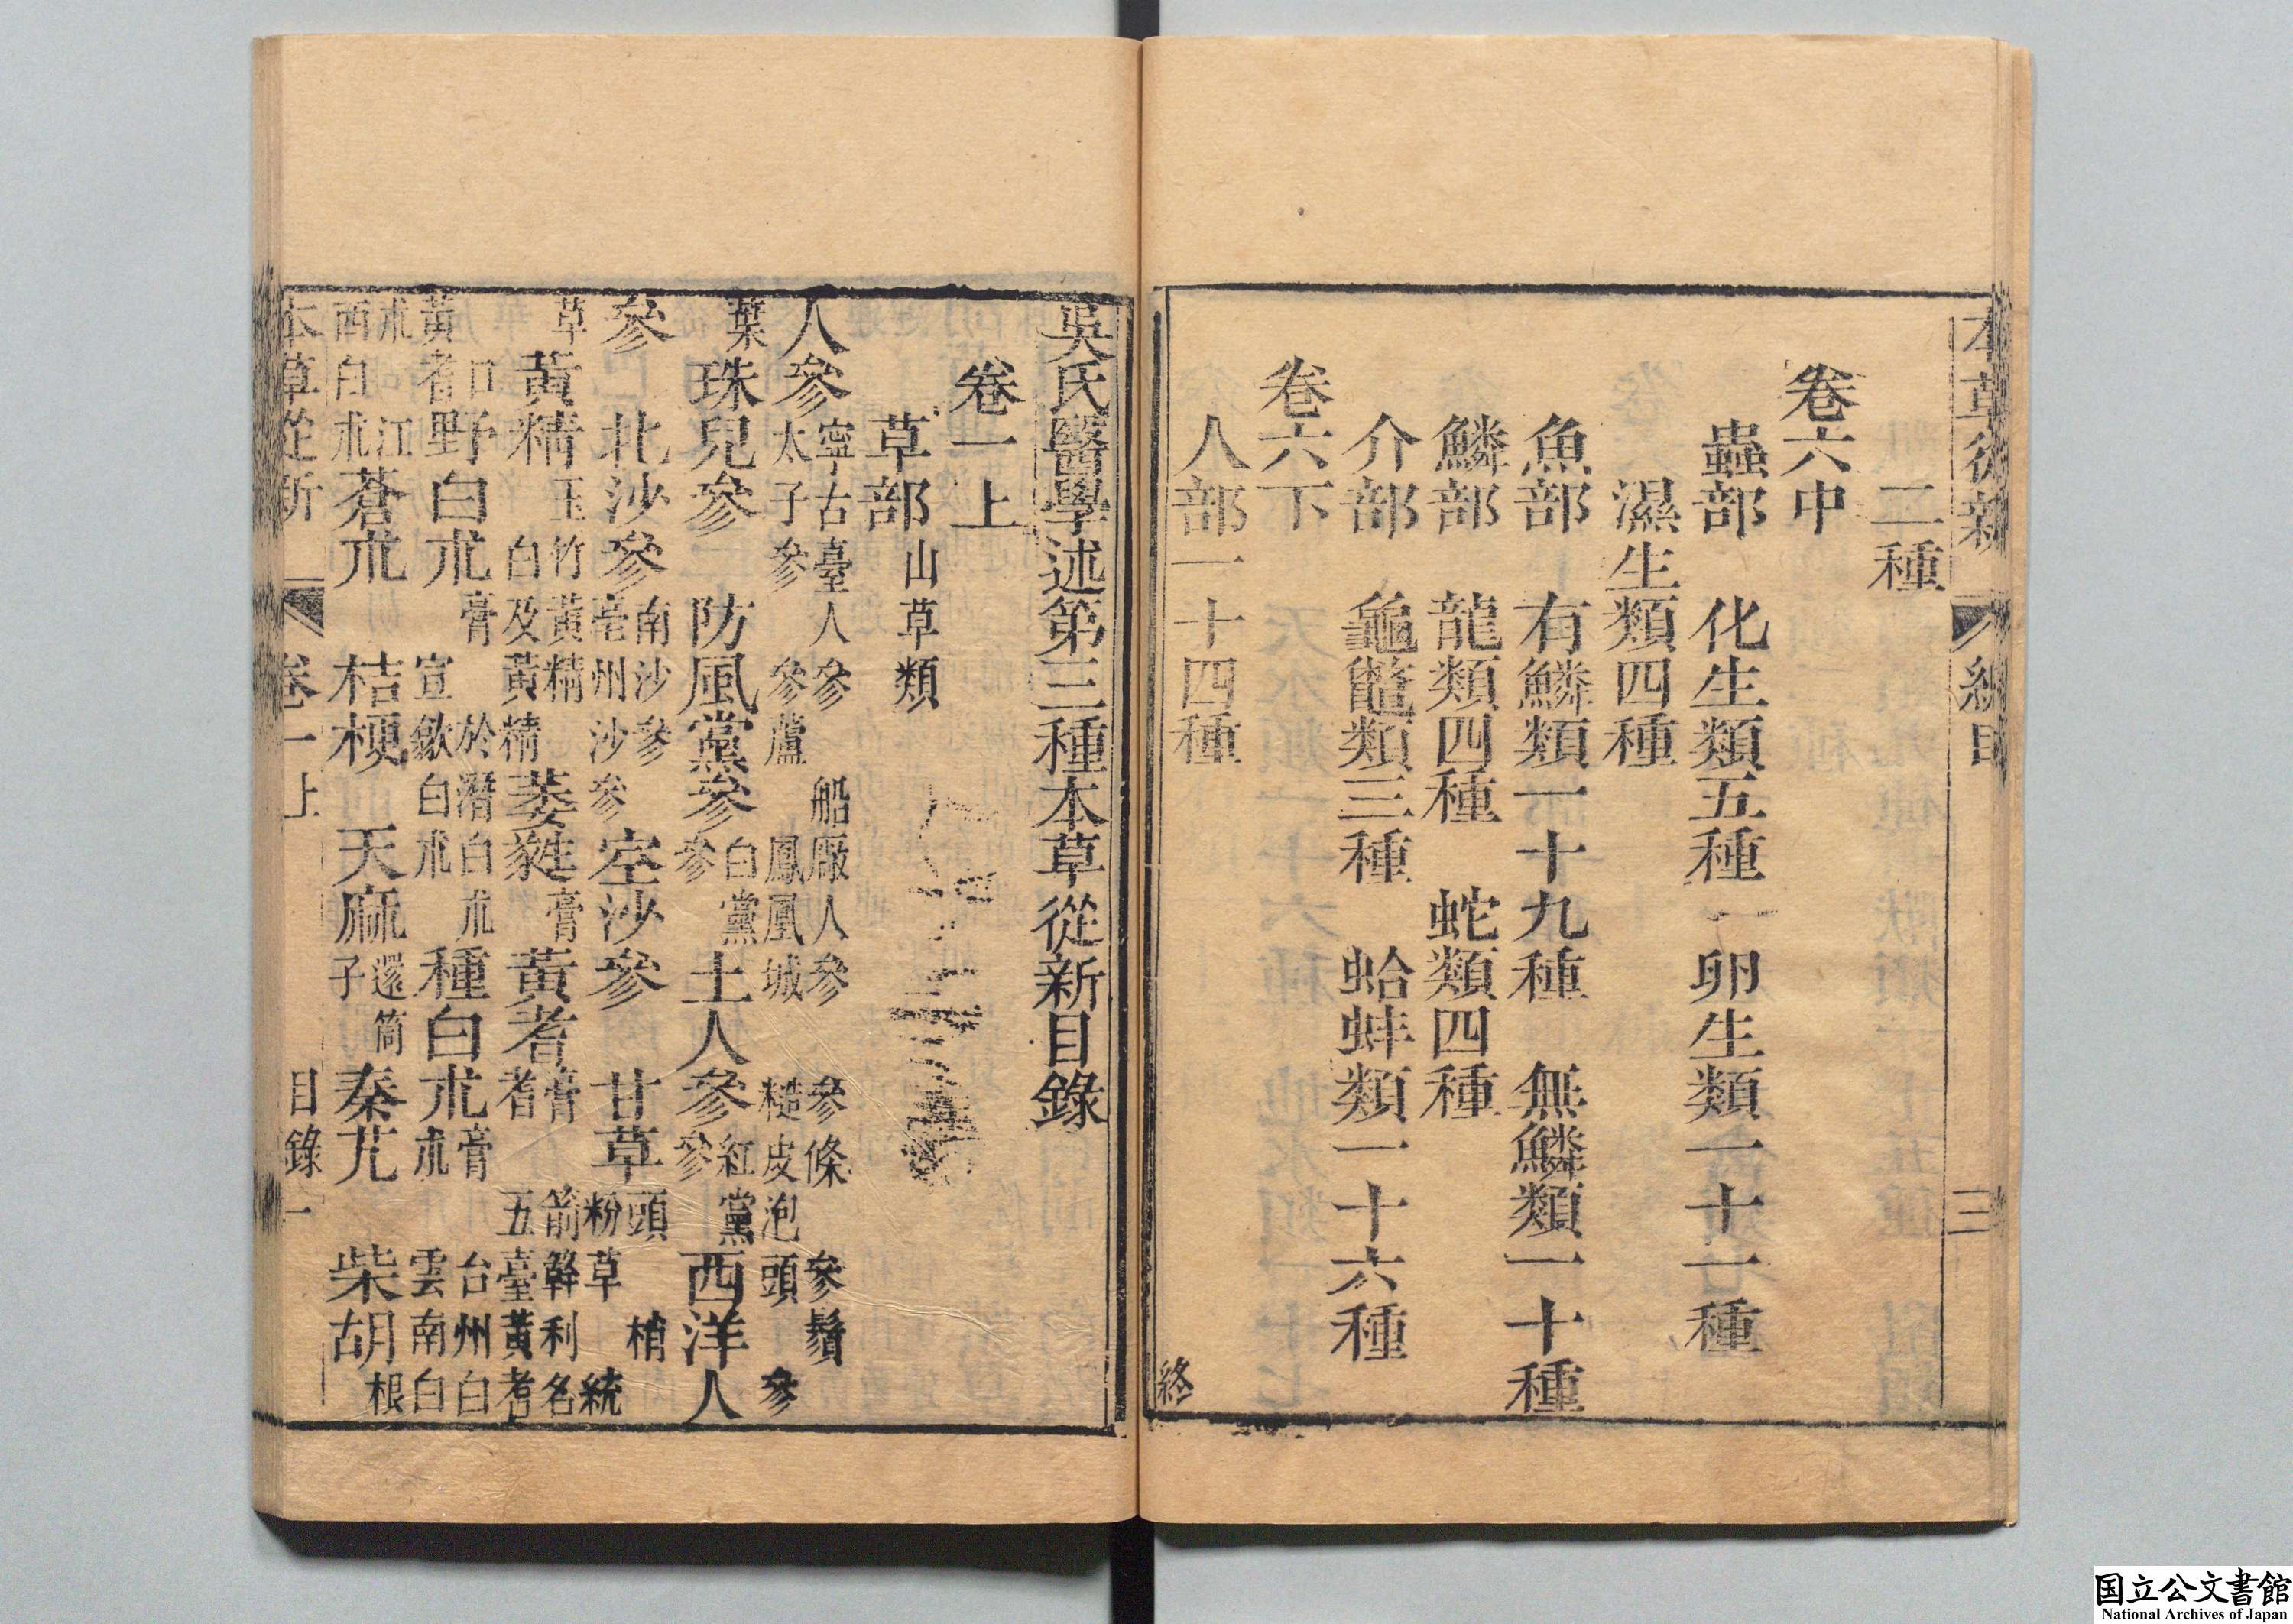 本草從新 總目 三
二種
卷六中
蟲部 化生類五種 卵生類一十一種
濕生類四種
魚部 有鱗類一十九種 無鱗類一十種
鱗部 龍類四種 蛇類四種
介部 龜鼈類三種 蛤蚌類一十六種
卷六下
人部一十四種
終
吳氏醫學述第三種本草從新目錄
卷一上
草部 山草類
人參 寧古臺人參 船廠人參 參條 參鬚 太子參 參蘆 鳳凰城 糙皮泡頭 參
葉 珠兒參 防風黨參 白黨參 土人參 紅黨參 西洋人
參 北沙參 南沙參 亳州沙參 空沙參 甘草 頭 梢 粉草 統
草 黃精 玉竹黃精 白及黃精 萎蕤 膏 黃耆 膏 箭幹 利名 耆 五臺黃耆
黃耆 口 野白朮 膏 於潛白朮 宣歙白朮 種白朮 膏 朮 台州白 雲南白
朮 江西白朮 蒼朮 桔梗 天麻 還筒子 秦艽 柴胡 根
本草從新 卷一上 目錄 一
国立公文書館
National Archives of Japan